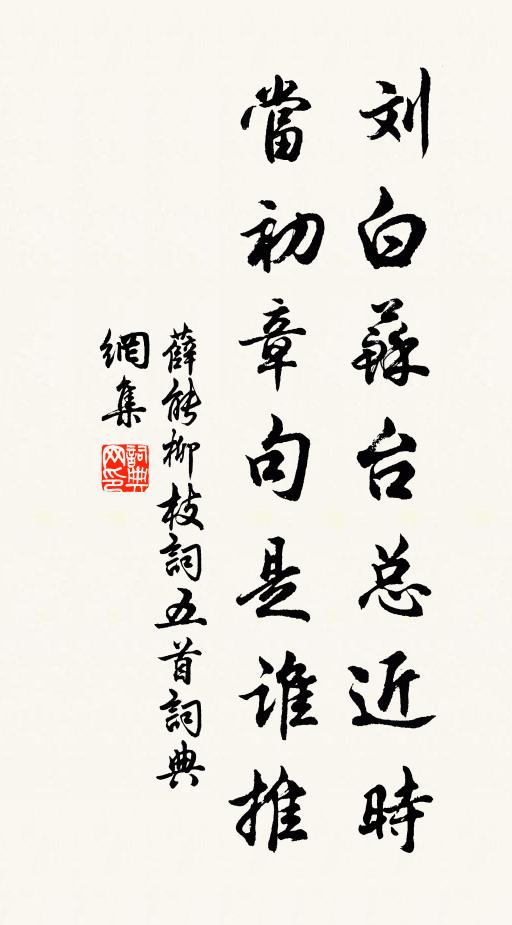 刘白蘇台总近時
當初章句是谁推
薛能柳枝詞五首詞典
網集
詞典网印